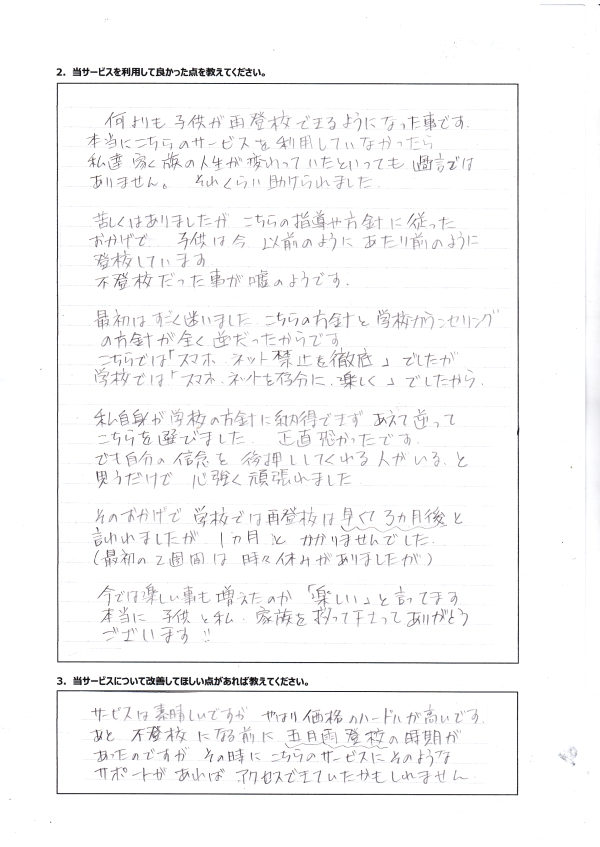 2. 当サービスを利用して良かった点を教えてください。
何よりも子供が再登校できるようになった事です。
本当にこちらのサービスを利用していなかったら
私達家族の人生が変わっていたといっても過言では
ありません。それくらい助けられました。
苦しくはありましたが こちらの指導や方針に従った
おかげで 子供は今 以前のように あたり前のように
登校しています
不登校だった事が嘘のようです。
最初はすごく迷いました こちらの方針と学校カウンセリング
の方針が全く逆だったからです
こちらでは「スマホ・ネット禁止を徹底」でしたが
学校では「スマホ・ネットを存分に、楽しく」でしたから。
私自身が学校の方針に納得できず あえて逆って
こちらを選びました。 正直恐かったです。
でも自分の信念を後押ししてくれる人がいる、と
思うだけで 心強く頑張れました
そのおかげで 学校では再登校は早くて3ヵ月後と
言われましたが 1ヵ月と かかりませんでした
(最初の2週間は時々休みがありましたが)
今では楽しい事も増えたのか「楽しい」と言ってます
本当に 子供と私、家族を救って下さって ありがとう
ございます!!
3. 当サービスについて改善してほしい点があれば教えてください。
サービスは素晴しいですが やはり価格のハードルが高いです。
あと 不登校になる前に 五月雨登校の時期が
あったのですが その時に こちらのサービスにそのような
サポートが あれば アクセスできていたかもしれません